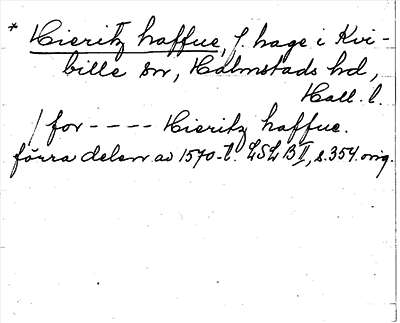 * Hieritz haffue, f. hage i Kvi-
bille sn, Halmstads hd,
Hall. l.
/ for ---- Hieritz haffue.
förra delen av 1570-t. LSL B II, s. 354. orig.